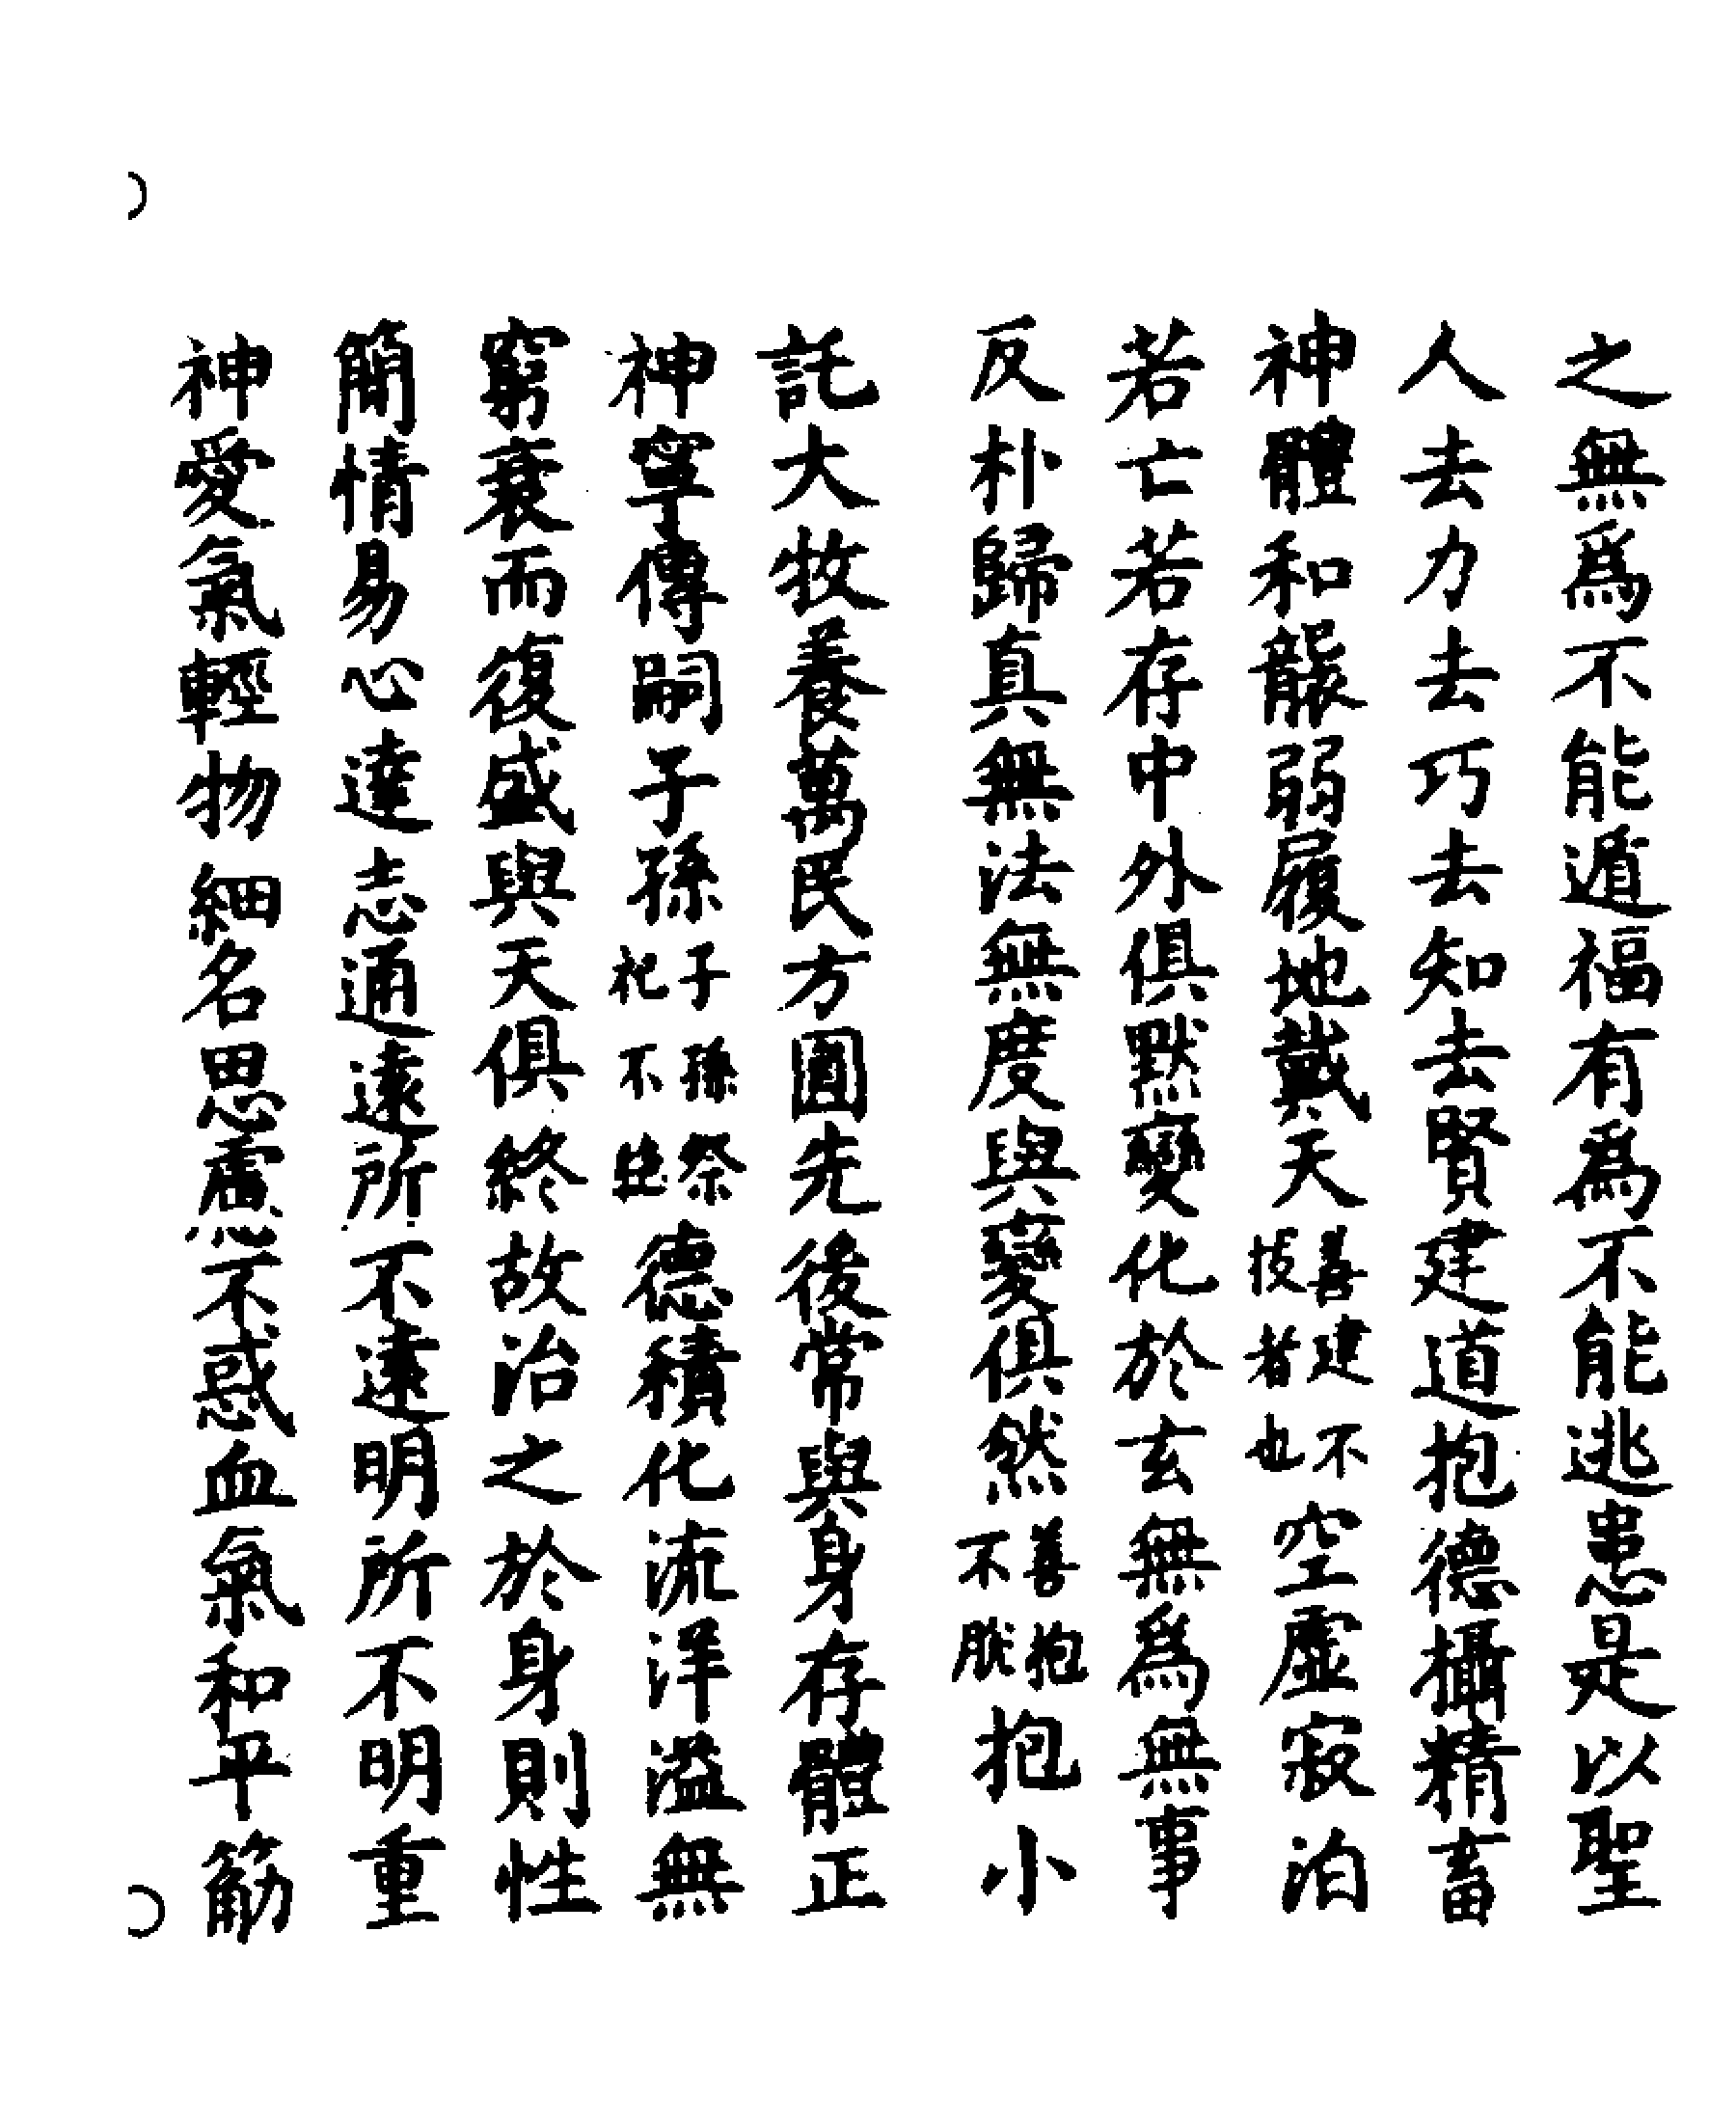 之無爲不能遁福有爲不能逃患是以聖
人去力去巧去知去賢建道抱德攝精畜
神體和襲弱履地戴天善建不拔者也空虛寂泊
若亡若存中外俱默變化於玄無爲無事
反朴歸真無法無度與變俱然善抱不脫抱小
託大牧養萬民方圓先後常與身存體正
神寧傳嗣子孫子孫祭祀不絕德積化流洋溢無
窮衰而復盛與天俱終故治之於身則性
簡情易心達志通遠所不遠明所不明重
神愛氣輕物細名思慮不惑血氣和平筋